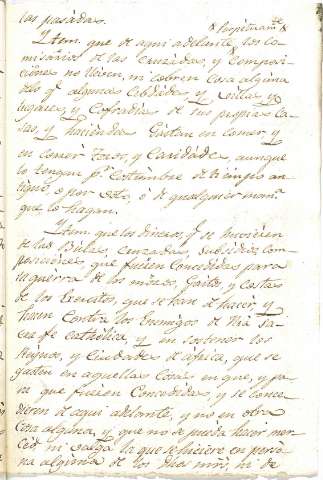 las pasadas.
Ytem. que de aqui adelante, los co-
misarios de las Cruzadas, y Composi-
ciones no lleven, ni cobren cosa alguna
de lo q.e algunas Cibdades y villas, y
lugares, y Cofradias de sus propias ca-
sas, y haciendas Gastan en comer, y
en correr Toros, y Caridades, aunque
lo tengan p.r Costumbre de tiempo an-
tiguo, o por voto, ó de qualquier man.a
que lo hagan.
Ytem. que los dineros, q.e se huvieren
de las Bulas, cruzadas, subsidios, com-
posiciones, que fueren concedidas para
la guerra de los moros, Gastos, y costas
de los Exercitos, que se han de hacer y
hacen Contra los Enemigos de Nra Sa-
cra fe Catholica, y en sostener los
Reynos, y Ciudades de Africa, que se
gasten en aquellas Cosas en que, y pa-
ra que fueren Concedidos, y se conce-
dieren de aqui adelante, y no en otra
Cosa alguna, y que no se pueda hacer mer-
ced, ni valga la que se hiciere en perso-
na alguna de los dhos mrs, ni de